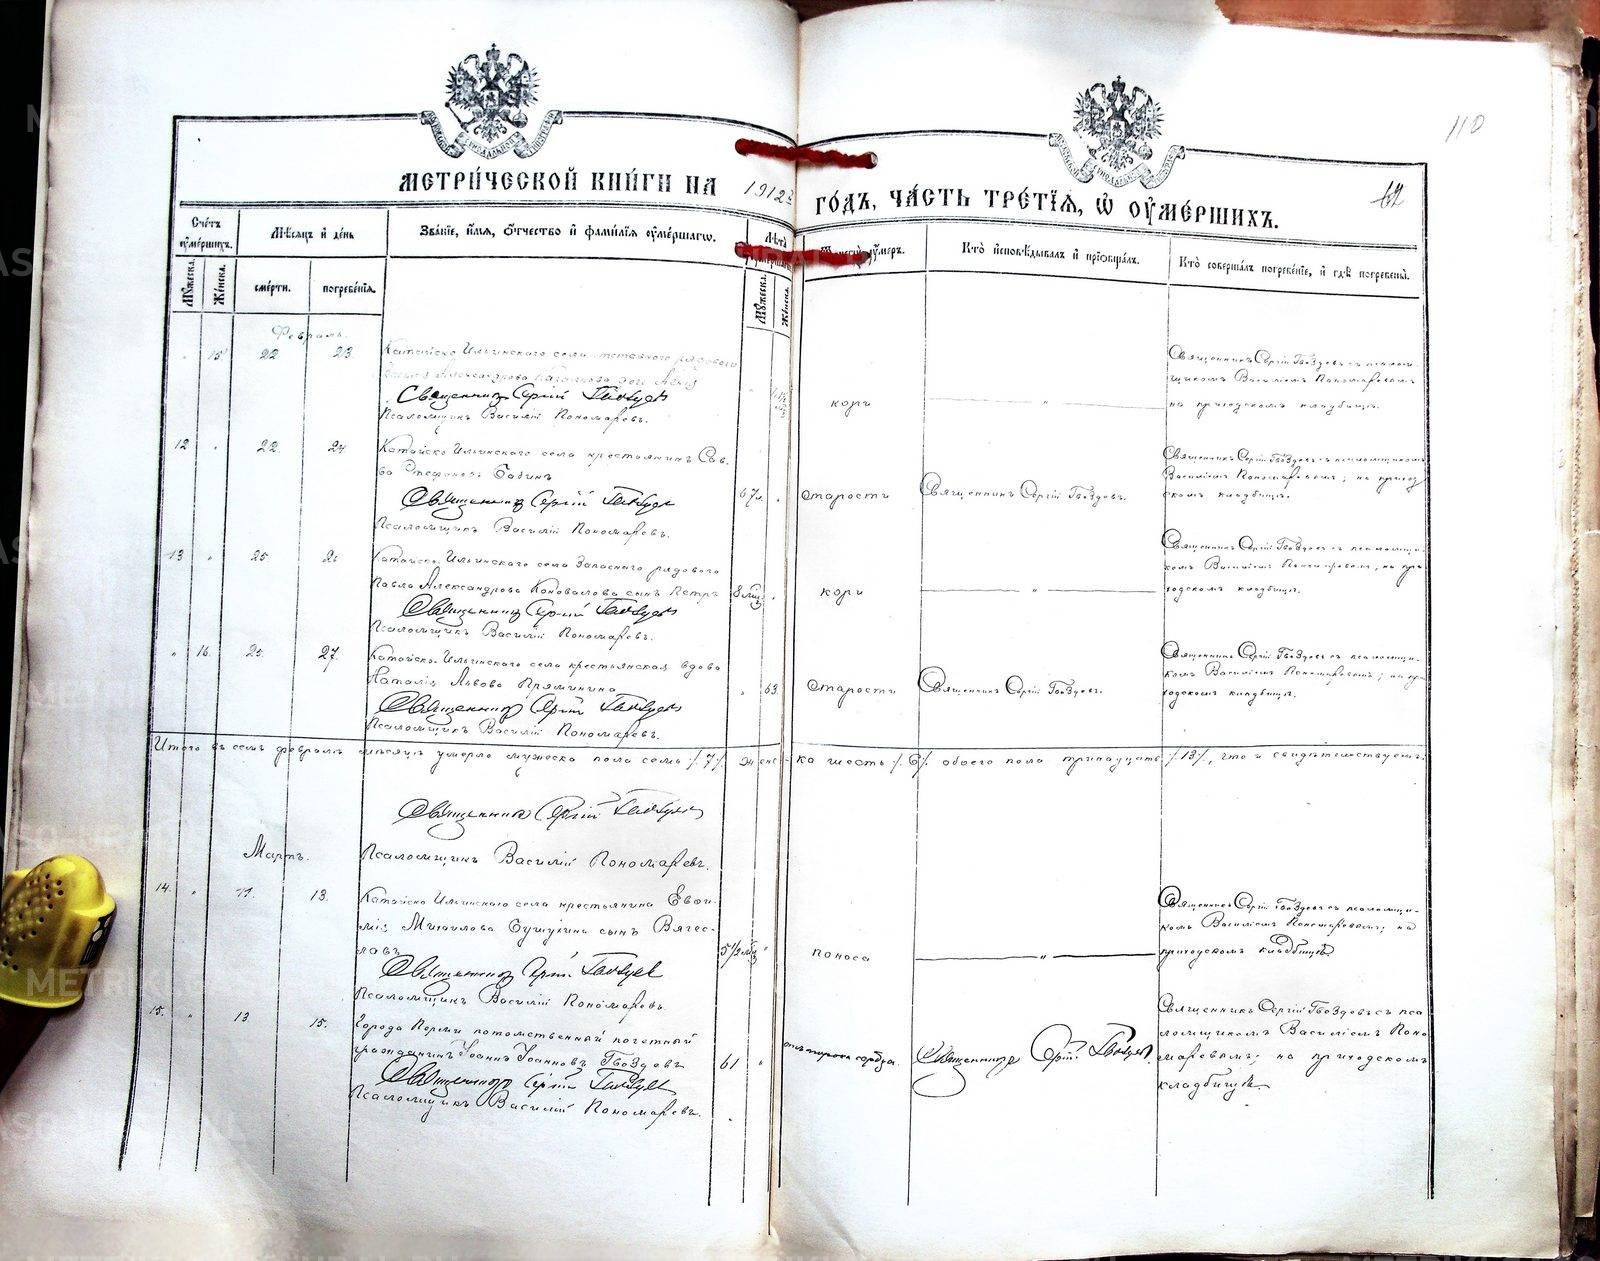 110
МЕТРИЧЕСКОЙ КНИГИ НА 1912 ГОДЪ, ЧАСТЬ ТРЕТІЯ, Ѡ ОУМЕРШИХЪ.
Счетъ оумершихъ.
Мѣсяцъ и день
Званіе, имя, отчество и фамилія оумершагѡ.
Лѣта
оумер.
Кто исповѣдывалъ и пріобщалъ.
Кто совершалъ погребеніе, и гдѣ погребены.
Мужеска.
Женска.
смерти.
погребенія.
Мужеска.
Женска.
Февраль.
15 22 23
Катайско Ильинскаго села рядового
Александрова
Священникъ Сергій Гвоздевъ
Псаломщикъ Василій Пономаревъ.
корь
Священникъ Сергій Гвоздевъ съ псалом-
щикомъ Василіемъ Пономаревымъ
на приходскомъ кладбищѣ.
12 22. 24
Катайско Ильинскаго села крестьянинъ Сав-
ва
Священникъ Сергій Гвоздевъ
Псаломщикъ Василій Пономаревъ.
67 л.
старость
Священникъ Сергій Гвоздевъ.
Священникъ Сергій Гвоздевъ съ псаломщикомъ
Василіемъ Пономаревымъ; на приход-
скомъ кладбищѣ.
13 25.
Катайско Ильинскаго села Запаснаго рядового
Павла Александрова Коновалова сынъ Петръ
Священникъ Сергій Гвоздевъ
Псаломщикъ Василій Пономаревъ.
8 мѣц
кори
Священникъ Сергій Гвоздевъ съ псаломщи-
комъ Василіемъ Пономаревымъ; на при-
ходскомъ кладбищѣ.
" 16. 25. 27.
Катайско Ильинскаго села крестьянская вдова
Наталія Львова
Священникъ Сергій Гвоздевъ
Псаломщикъ Василій Пономаревъ.
63.
старость
Священникъ Сергій Гвоздевъ.
Священникъ Сергій Гвоздевъ съ псаломщи-
комъ Василіемъ Пономаревымъ; на при-
ходскомъ кладбищѣ.
Итого въ семъ февралѣ мѣсяцѣ умерло мужеска пола семь /.7/. женс-ка шесть /.6/. обоего пола тринадцать /.13/., что и свидѣтельствуемъ:
Священникъ Сергій Гвоздевъ
Мартъ.
Псаломщикъ Василій Пономаревъ.
14. " 11. 13.
Катайско Ильинскаго села крестьянина
Михаилова сынъ Вячес-
лавъ
Священникъ Сергій Гвоздевъ
Псаломщикъ Василій Пономаревъ.
5 1/2 мѣц
"
поноса
"
Священникъ Сергій Гвоздевъ съ псаломщи-
комъ Василіемъ Пономаревымъ; на
приходскомъ кладбищѣ
15. " 13. 15.
Города Перми потомственный почетный
гражданинъ Іоаннъ Іоанновъ Гвоздевъ
Священникъ Сергій Гвоздевъ
Псаломщикъ Василій Пономаревъ.
61 "
отъ порока сердца.
Священникъ Сергій Гвоздевъ.
Священникъ Сергій Гвоздевъ съ пса-
ломщикомъ Василіемъ Поно-
маревымъ; на приходскомъ
кладбищѣ